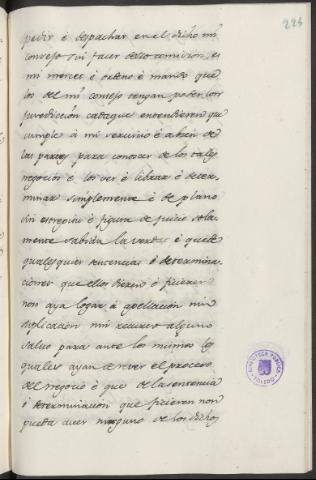 223
pedir é despachar en el dicho mi
consejo sin facer dello comision, es
mi merced é ordeno é mando que
los del mi consejo tengan poder con
juredicción cada que entendieren que
cumple á mi servicio é a bien de
las partes para conocer de los tales
negocios e los ver é librar é deter
minar simplemente é de plano
sin estrepitu é figura de juicio sola
mente sabida la verdad é que de
qualesquier sentencias é determina
ciones que ellos dieren é ficieren
non aya logar á apellacion nin
suplicacion nin recurso alguno
salvo para ante los mismos los
quales ayan de rever el proceso
del negocio é que de la sentencia
é determinacion que ficieren non
pueda aver ninguno de los dichos
BIBLIOTECA PUBLICA
TOLEDO